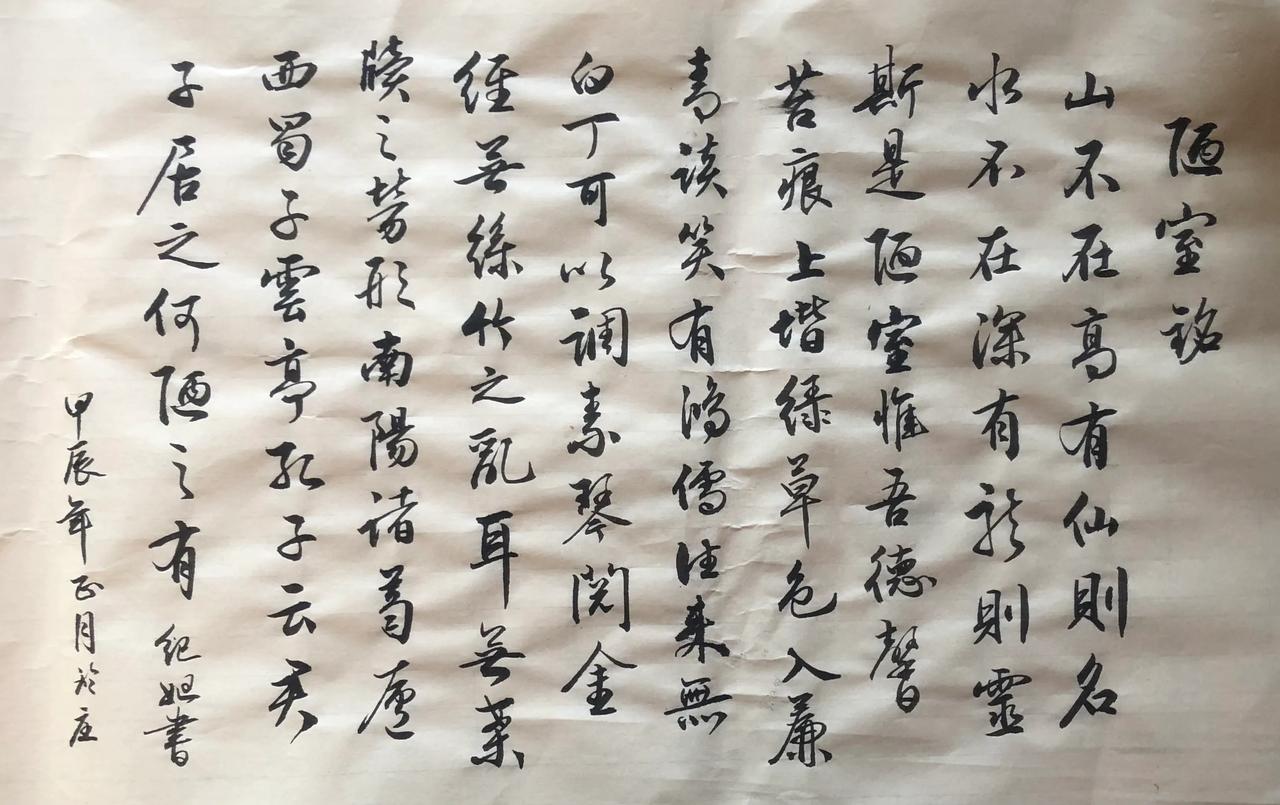 陋室銘
山不在高有仙則名
水不在深有龍則靈
斯是陋室惟吾德馨
苔痕上堦緑草色入簾
青談笑有鴻儒往来無
白丁可以調素琴閱金
經無絲竹之亂耳無案
牘之勞形南陽諸葛廬
西蜀子雲亭孔子云君
子居之何陋之有 紀妲書
甲辰年正月於庄